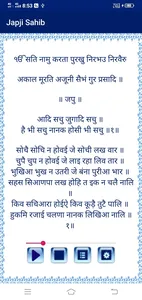 8:53
Japji Sahib
ੴ सति नामु करता पुरखु निरभउ निरवैरु
अकाल मूरति अजूनी सैभं गुर प्रसादि ॥
॥ जपु ॥
आदि सचु जुगादि सचु ॥
है भी सचु नानक होसी भी सचु ॥१॥
सोचै सोचि न होवई जे सोची लख वार ॥
चुपै चुप न होवई जे लाइ रहा लिव तार ॥
भुखिआ भुख न उतरी जे बंना पुरीआ भार ॥
सहस सिआणपा लख होहि त इक न चलै नालि
॥
किव सचिआरा होईऐ किव कूड़ै तुटै पालि ॥
हुकमि रजाई चलणा नानक लिखिआ नालि ॥
१॥